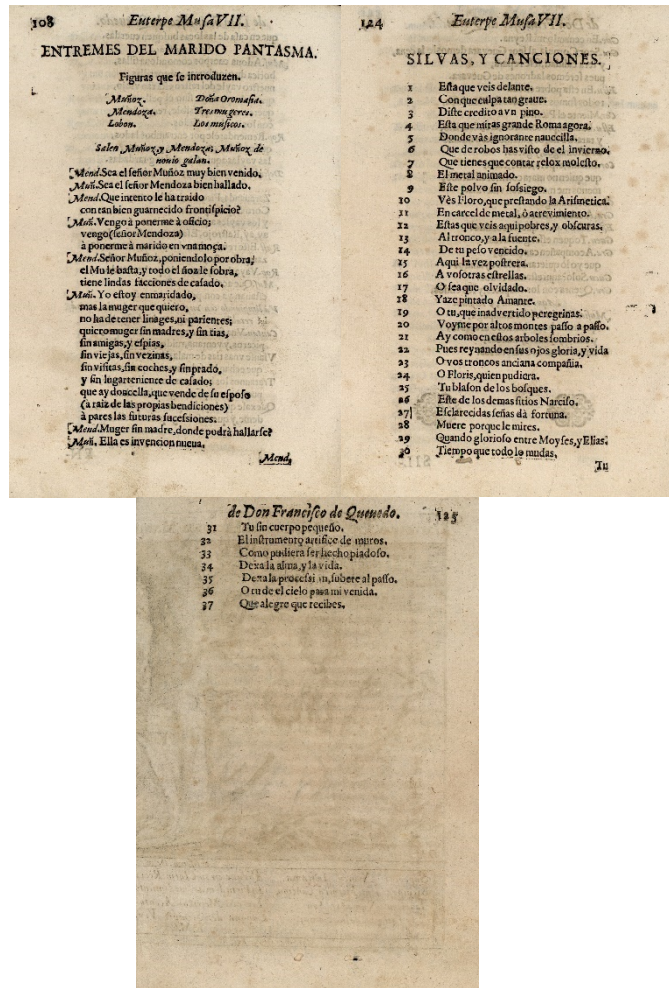 108 Euterpe Musa VII.
ENTREMES DEL MARIDO PANTASMA.
Figuras que se introduzen.
Muñoz. Doña Oromasia.
Mendoza. Tres mugeres.
Lobon. Los musicos.
Salen Muñoz, y Mendoza; Muñoz de
nouio galan.
Mend. Sea el señor Muñoz muy bien venido.
Muñ. Sea el señor Mendoza bien hallado.
Mend. Que intento le ha traido
con tan bien guarnecido frontispicio?
Muñ. Vengo à ponerme à oficio;
vengo (señor Mendoza)
à ponerme à marido en vna moça.
Mend. Señor Muñoz, poniendolo por obra,
el Mu le basta, y todo el ñoz le sobra,
tiene lindas facciones de casado.
Muñ. Yo estoy enmaridado,
mas la muger que quiero,
no ha de tener linages, ni parientes;
quiero muger sin madres, y sin tias,
sin amigas, y espias,
sin viejas, sin vezinas,
sin visitas, sin coches, y sin prado,
y sin lugarteniente de casado;
que ay doncella, que vende de su esposo
(à raiz de las propias bendiciones)
à pares las futuras sucessiones.
Mend. Muger sin madre, donde podrà hallarse?
Muñ. Ella es invencion nueua.
Mend.
124 Euterpe Musa VII.
SILVAS, Y CANCIONES.
1 Esta que veis delante.
2 Con que culpa tan graue.
3 Diste credito a vn pino.
4 Esta que miras grande Roma agora.
5 Donde vàs ignorante nauecilla.
6 Que de robos has visto de el invierno.
7 Que tienes que contar relox molesto.
8 El metal animado.
9 Este polvo sin sossiego.
10 Vès Floro, que prestando la Arismetica.
11 En carcel de metal, ò atrevimiento.
12 Estas que veis aqui pobres, y obscuras.
13 Al tronco, y a la fuente.
14 De tu peso vencido.
15 Aqui la vez postrera.
16 A vosotras estrellas.
17 O sea que olvidado.
18 Yaze pintado Amante.
19 O tu, que inadvertido peregrinas.
20 Voyme por altos montes passo a passo.
21 Ay como en estos arboles sombrios.
22 Pues reynando en sus ojos gloria, y vida
23 O vos troncos anciana compañia.
24 O Floris, quien pudiera.
25 Tu blason de los bosques.
26 Este de los demas sitios Narciso.
27 Esclarecidas señas dà fortuna.
28 Muere porque le mires.
29 Quando glorioso entre Moyses, y Elias.
30 Tiempo que todo lo mudas.
Tu
de Don Francisco de Queuedo. 125
31 Tu sin cuerpo pequeño.
32 El instrumento artifice de muros.
33 Como pudiera ser hecho piadoso.
34 Dexa la alma, y la vida.
35 Dexa la procession, subete al passo.
36 O tu de el cielo para mi venida.
37 Que alegre que recibes.